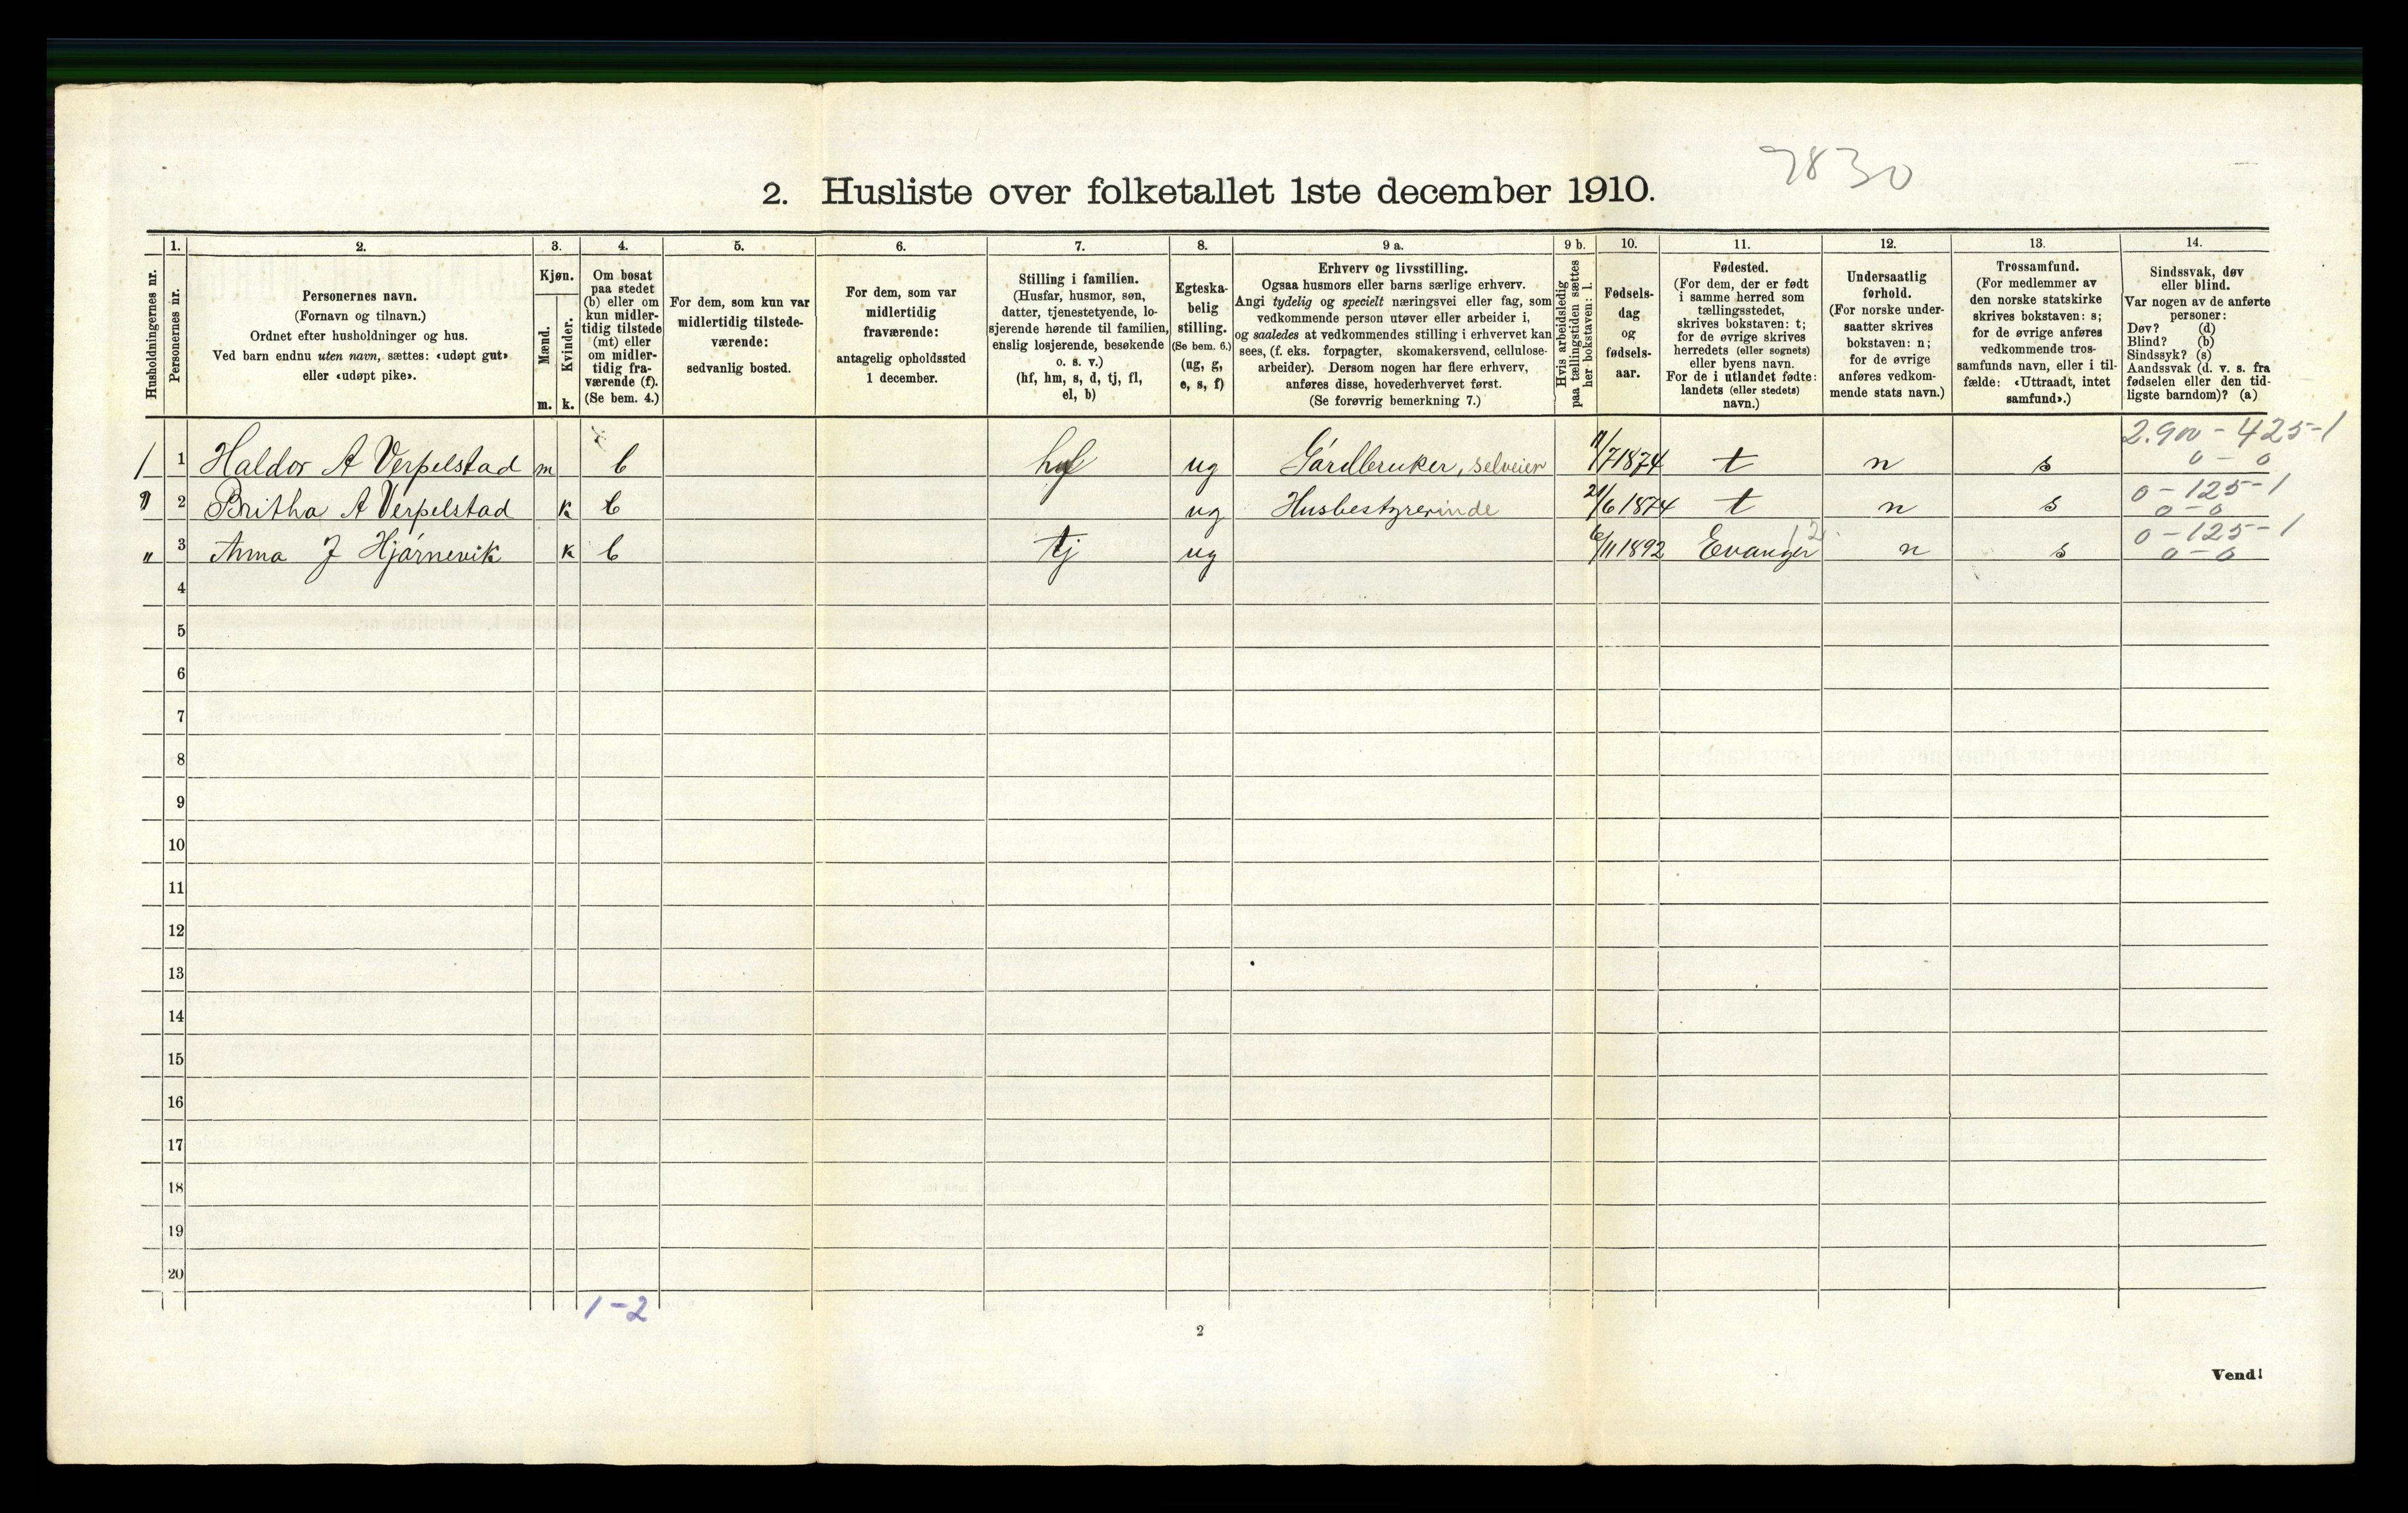 7830
2. Husliste over folketallet 1ste december 1910.
Husholdningernes nr.
1.
Personernes nr.
2.
Personernes navn.
(Fornavn og tilnavn.)
Ordnet efter husholdninger og hus.
Ved barn endnu uten navn, sættes: «udøpt gut»
eller «udøpt pike».
3.
Kjøn.
Mænd.
Kvinder.
m.
k.
4.
Om bosat
paa stedet
(b) eller om
kun midler-
tidig tilstede
(mt) eller
om midler-
tidig fra-
værende (f).
(Se bem. 4.)
5.
For dem, som kun var
midlertidig tilstede-
værende:
sedvanlig bosted.
6.
For dem, som var
midlertidig
fraværende:
antagelig opholdssted
1 december.
7.
Stilling i familien.
(Husfar, husmor, søn,
datter, tjenestetyende, lo-
sjerende hørende til familien,
enslig losjerende, besøkende
o. s. v.)
(hf, hm, s, d, tj, fl,
el, b)
8.
Egteska-
belig
stilling.
(Se bem. 6.)
(ug, g,
e, s, f)
9 a.
Erhverv og livsstilling.
Ogsaa husmors eller barns særlige erhverv.
Angi tydelig og specielt næringsvei eller fag, som
vedkommende person utøver eller arbeider i,
og saaledes at vedkommendes stilling i erhvervet kan
sees, (f. eks. forpagter, skomakersvend, cellulose-
arbeider). Dersom nogen har flere erhverv,
anføres disse, hovederhvervet først.
(Se forøvrig bemerkning 7.)
9 b.
Hvis arbeidsledig
paa tællingstiden sættes
her bokstaven: l.
10.
Fødsels-
dag
og
fødsels-
aar.
11.
Fødested.
(For dem, der er født
i samme herred som
tællingsstedet,
skrives bokstaven: t;
for de øvrige skrives
herredets (eller sognets)
eller byens navn.
For de i utlandet fødte:
landets (eller stedets)
navn.)
12.
Undersaatlig
forhold.
(For norske under-
saatter skrives
bokstaven: n;
for de øvrige
anføres vedkom-
mende stats navn.)
13.
Trossamfund.
(For medlemmer av
den norske statskirke
skrives bokstaven: s;
for de øvrige anføres
vedkommende tros-
samfunds navn, eller i til-
fælde: «Uttraadt, intet
samfund».)
14.
Sindssvak, døv
eller blind.
Var nogen av de anførte
personer:
Døv? (d)
Blind? (b)
Sindssyk? (s)
Aandssvak (d. v. s. fra
fødselen eller den tid-
ligste barndom)? (a)
2.900 - 425-1
1 1 Haldor A Verpelstad m b hf ug Gårdbruker, selveier 11/7 1874 t n s 0 - 0
0 - 125 - 1
" 2 Britha A Verpelstad k b ug Husbestyrerinde 21/6 1874 t n s 0 - 0
12. 0 - 125 - 1
" 3 Anna J Hjørnevik k b tj ug 6/11 1892 Evanger n s 0 - 0
4
5
6
7
8
9
10
11
12
13
14
15
16
17
18
19
20
1 - 2
2
Vend!